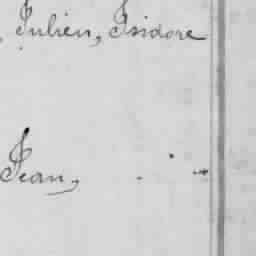 , Julien, Isidore
Jean,. . "